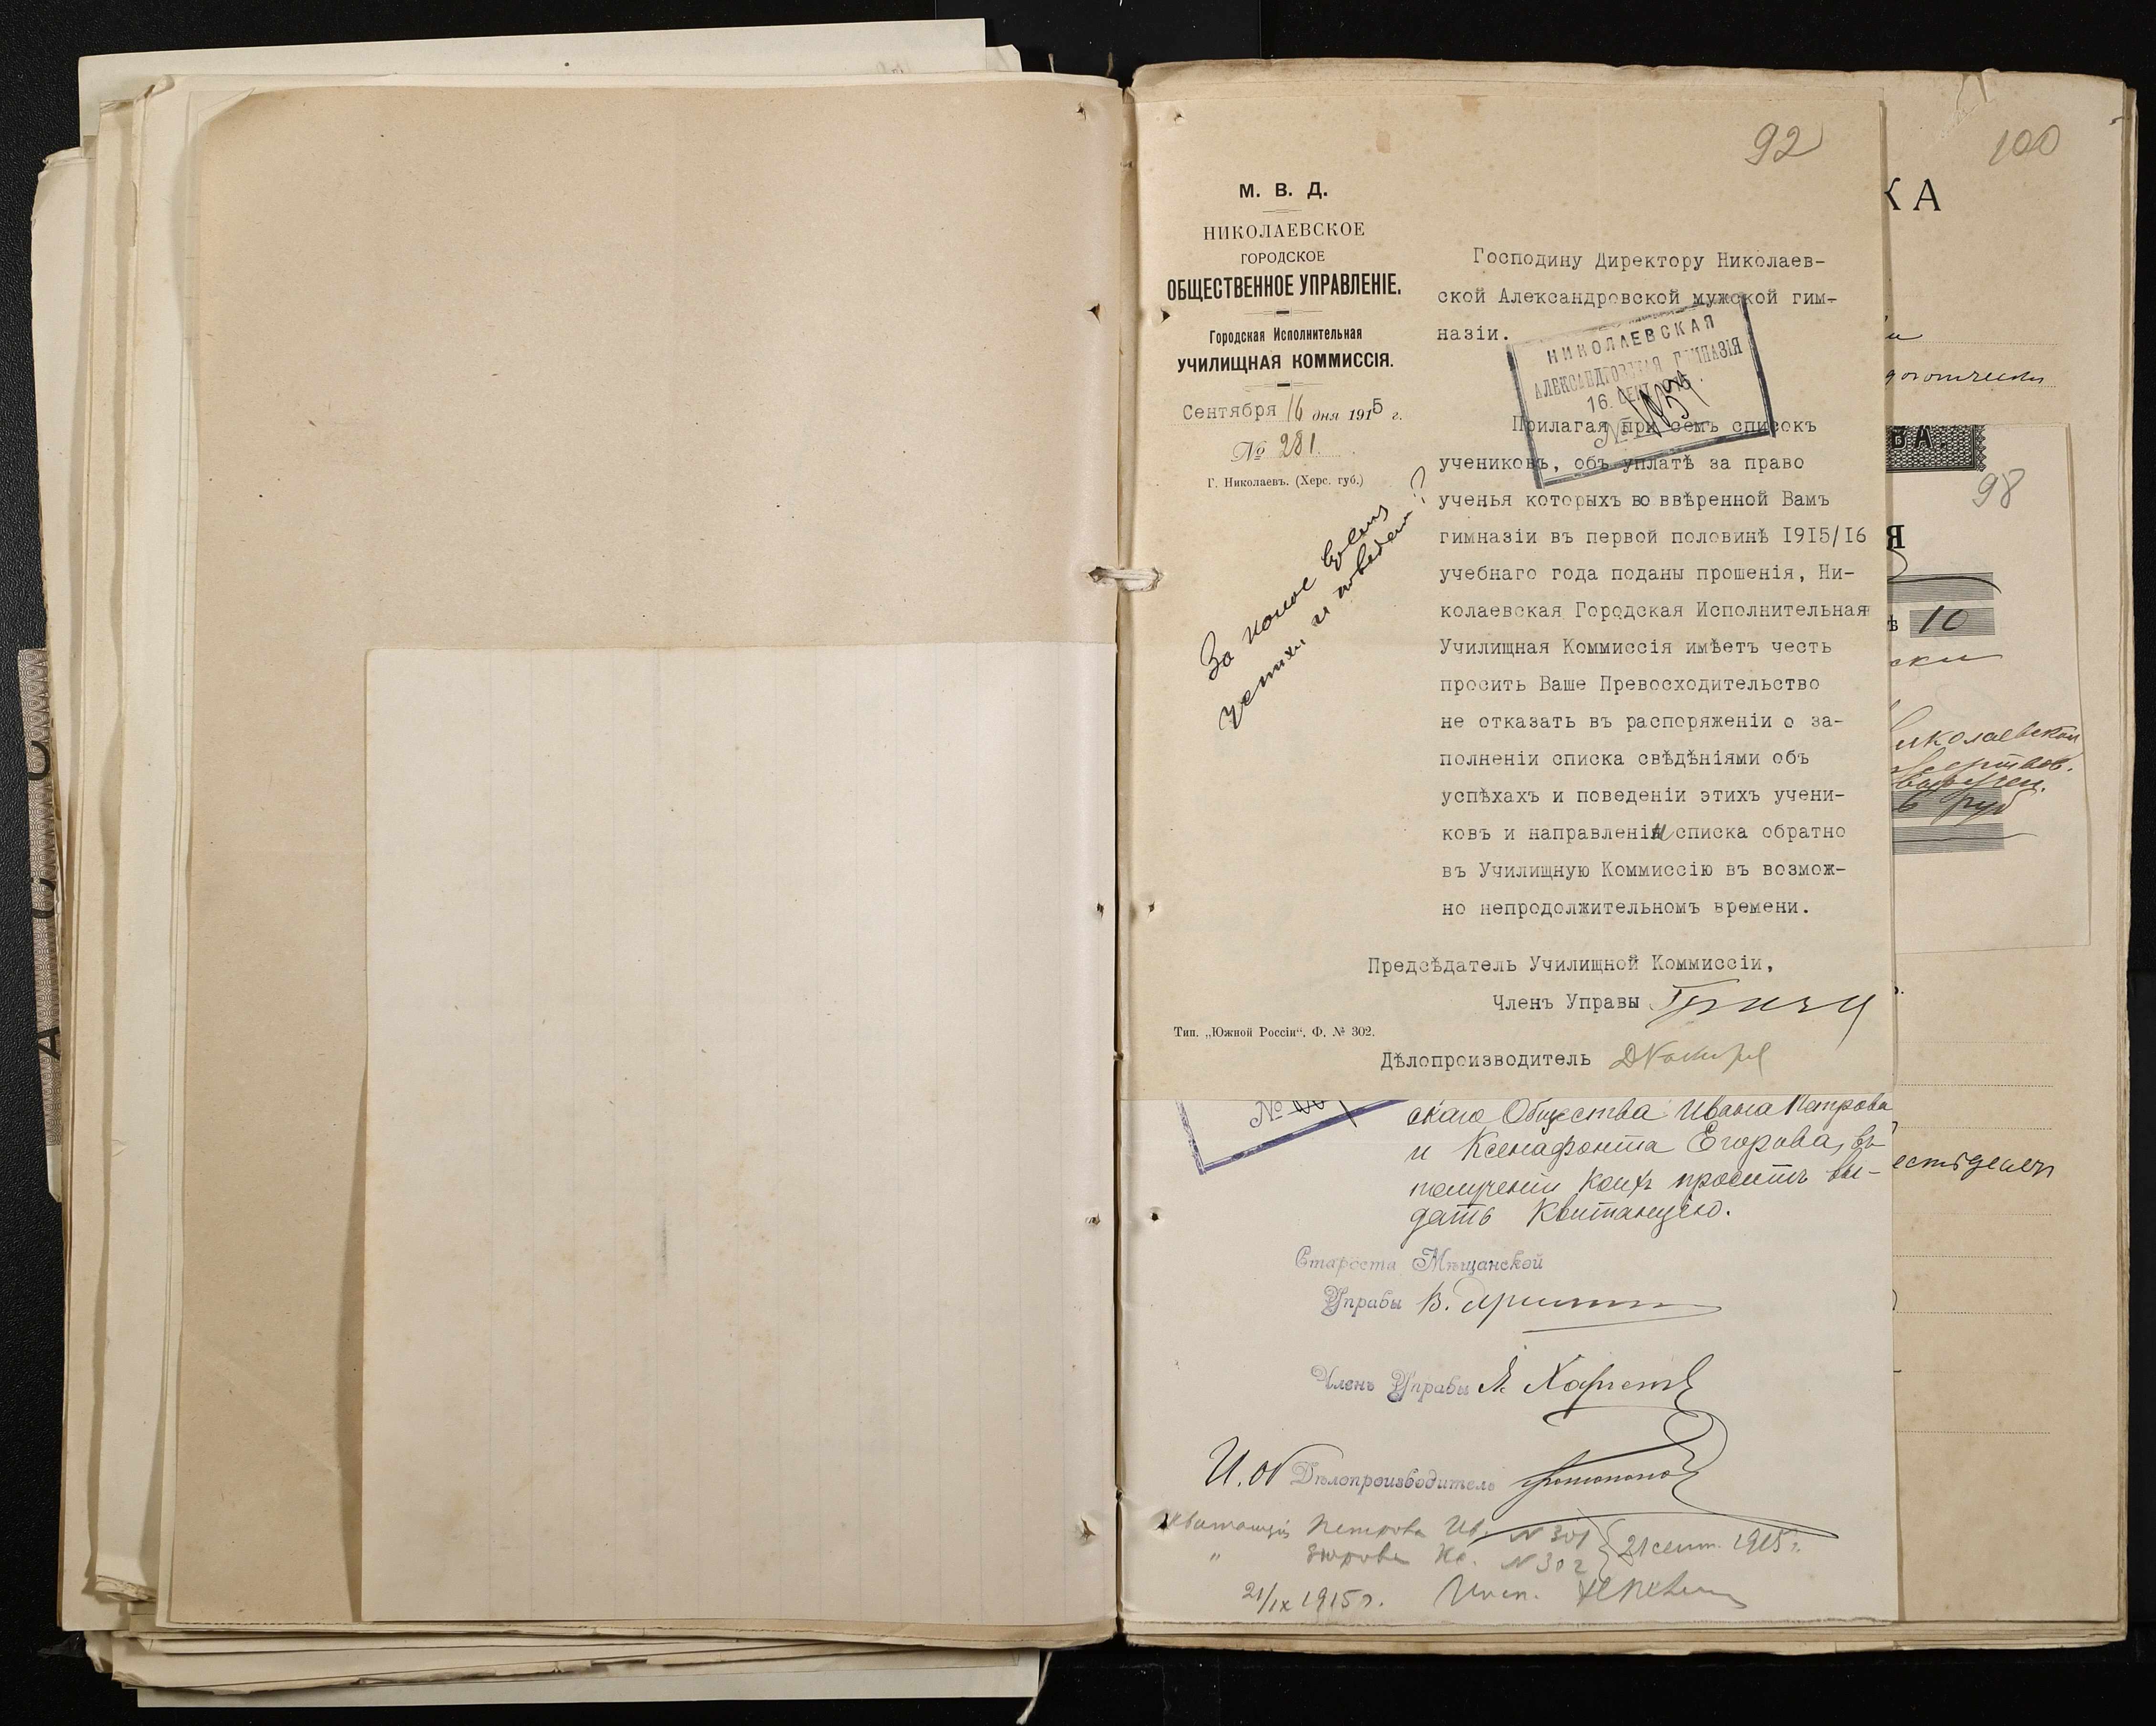 92
100
М. В. Д.
НИКОЛАЕВСКОЕ
ГОРОДСКОЕ
ОБЩЕСТВЕННОЕ УПРАВЛЕНІЕ.
Городская Исполнительная
УЧИЛИЩНАЯ КОММИССІЯ.
Сентября 16 дня 1915 г.
№ 281.
Г. Николаевъ. (Херс. губ.)
За какое время
успѣхи и поведен ?
Господину Директору Николаев-
ской Александровской мужской гим-
назіи.
НИКОЛАЕВСКАЯ
АЛЕКСАНДРОВСКАЯ ГИМНАЗІЯ
16. СЕНТ 1915
№
Прилагая при семъ списокъ
учениковъ, объ уплатѣ за право
ученья которыхъ во ввѣренной Вамъ
гимназіи въ первой половинѣ 1915/16
учебнаго года поданы прошенія, Ни-
колаевская Городская Исполнительная
Училищная Коммиссія имѣетъ честь
просить Ваше Превосходительство
не отказать въ распоряженіи о за-
полненіи списка свѣдѣніями объ
успѣхахъ и поведеніи этихъ учени-
ковъ и направленіи списка обратно
въ Училищную Коммиссію въ возмож-
но непродолжительномъ времени.
Предсѣдатель Училищной Коммиссіи,
Членъ Управы
Тип. „Южной Россіи“, Ф. № 302.
Дѣлопроизводитель
№
скаго Общества Ивана Петрова
и Ксенафонта Егорова, въ
полученіи коихъ проситъ вы-
дать квитанцію.
Староста Мѣщанской
Управы В.
Членъ Управы
И. об Дѣлопроизводитель
Квитанція Петрова Ив. N 301 21 сент. 1915 г.
" Егорова Кс. N 302
21/IX 1915 г. Инсп.
КА
ВА.
98
Я
10
ски
Николаевской
руб